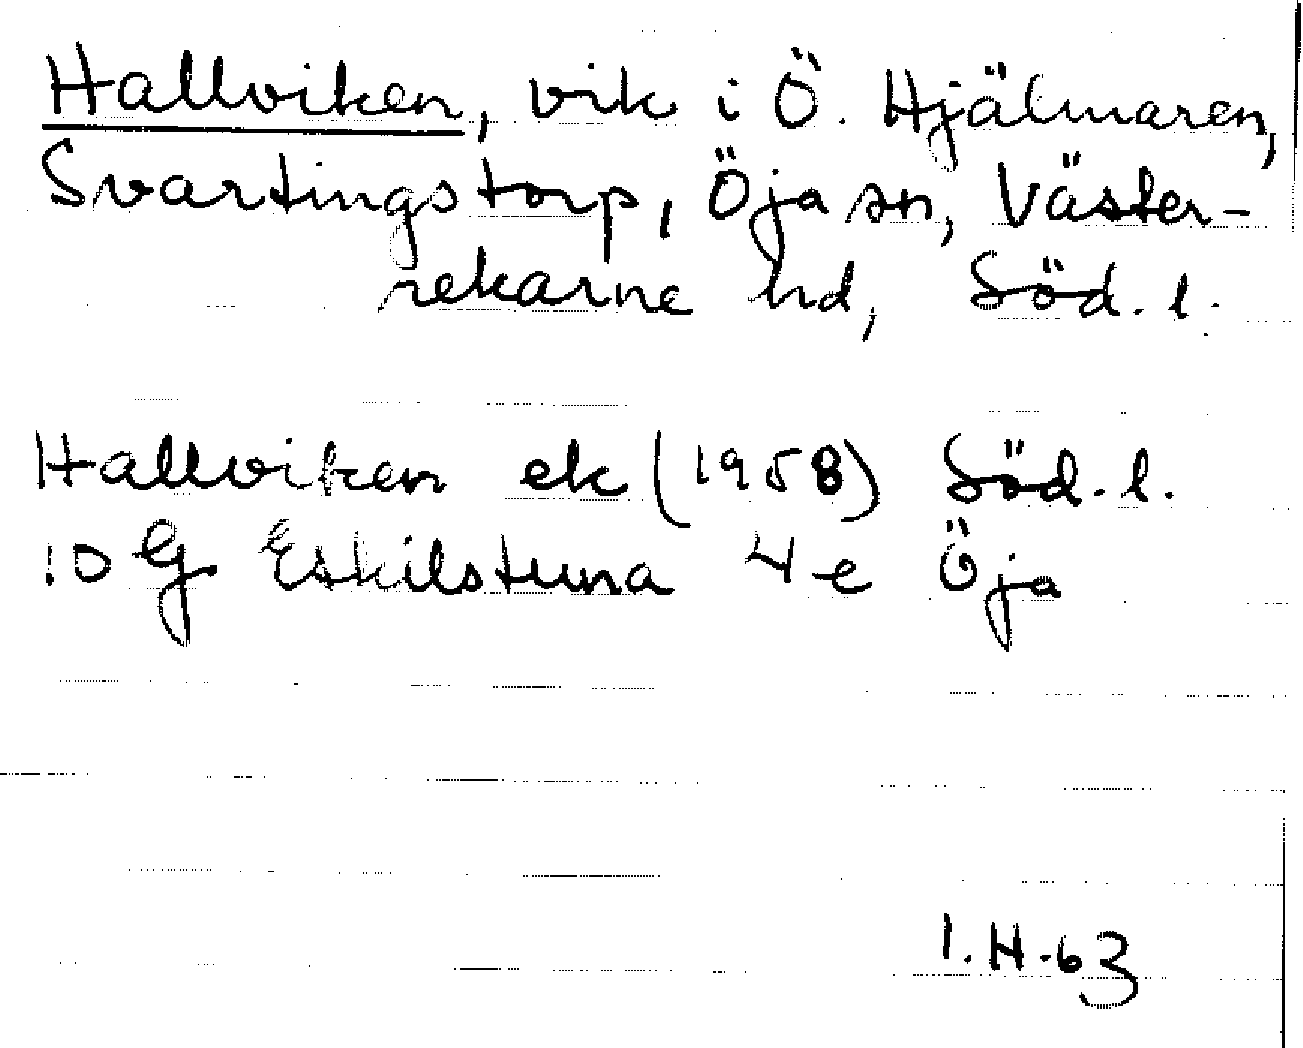 Hallviken, vik i Ö. Hjälmaren,
Svartingstorp, Öja sn, Väster-
rekarne hd, Söd. l.
Hallviken ek (1958) Söd. l.
10 G Eskilstuna 4 e Öja
I.H-63